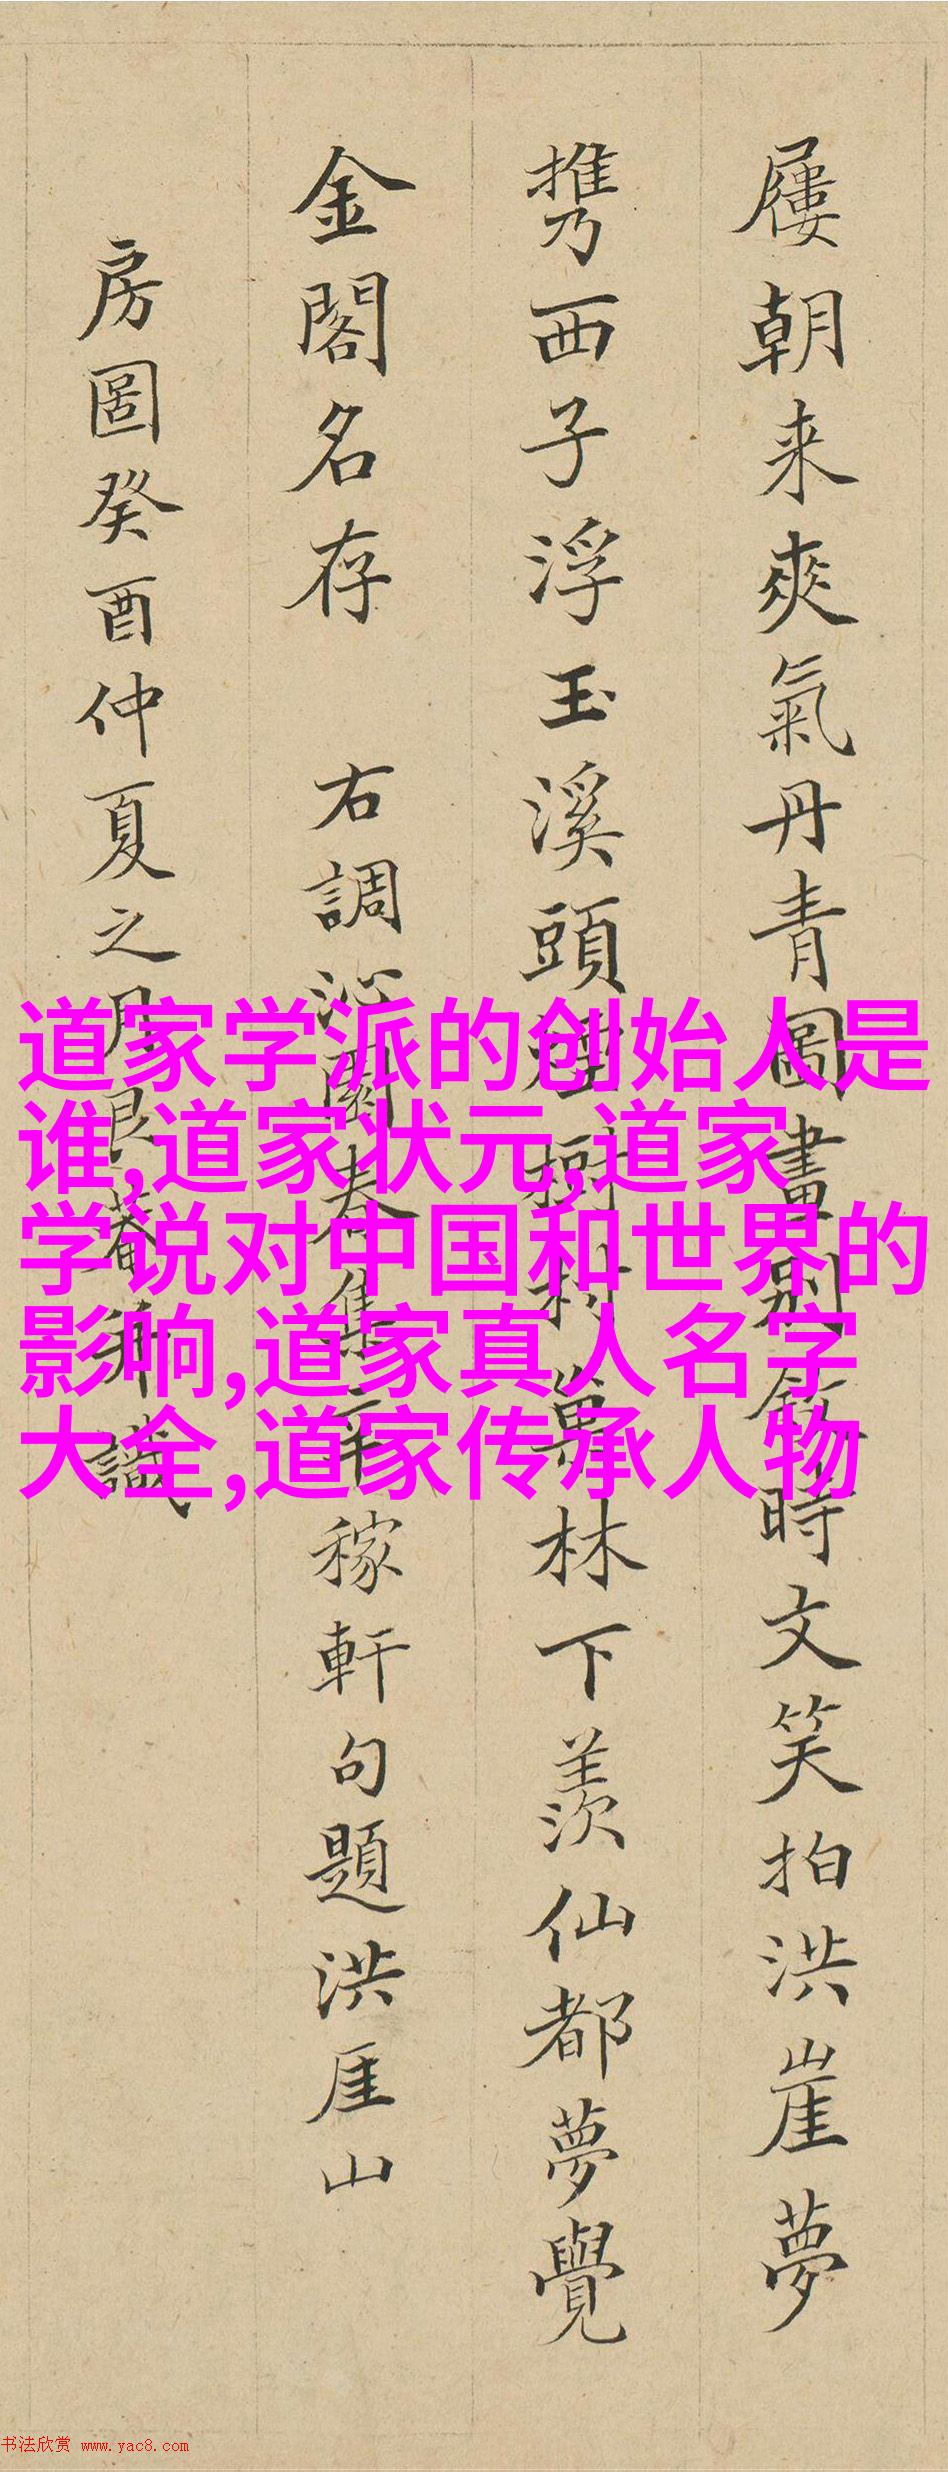 屨朝来爽氣丹青圖畫別鈙時文笑拍洪崖夢
携西子浮玉溪頭煙樹村巢林下羨仙都夢覺
金閣名存 右調沁園春集辛稼軒句題洪厓山
房圖癸酉仲夏之月艮菴并識
道家学派的创始人是
谁,道家状元,道家
学说对中国和世界的
影响,道家真人名字
大全,道家传承人物
书法欣赏 www.yac8.com